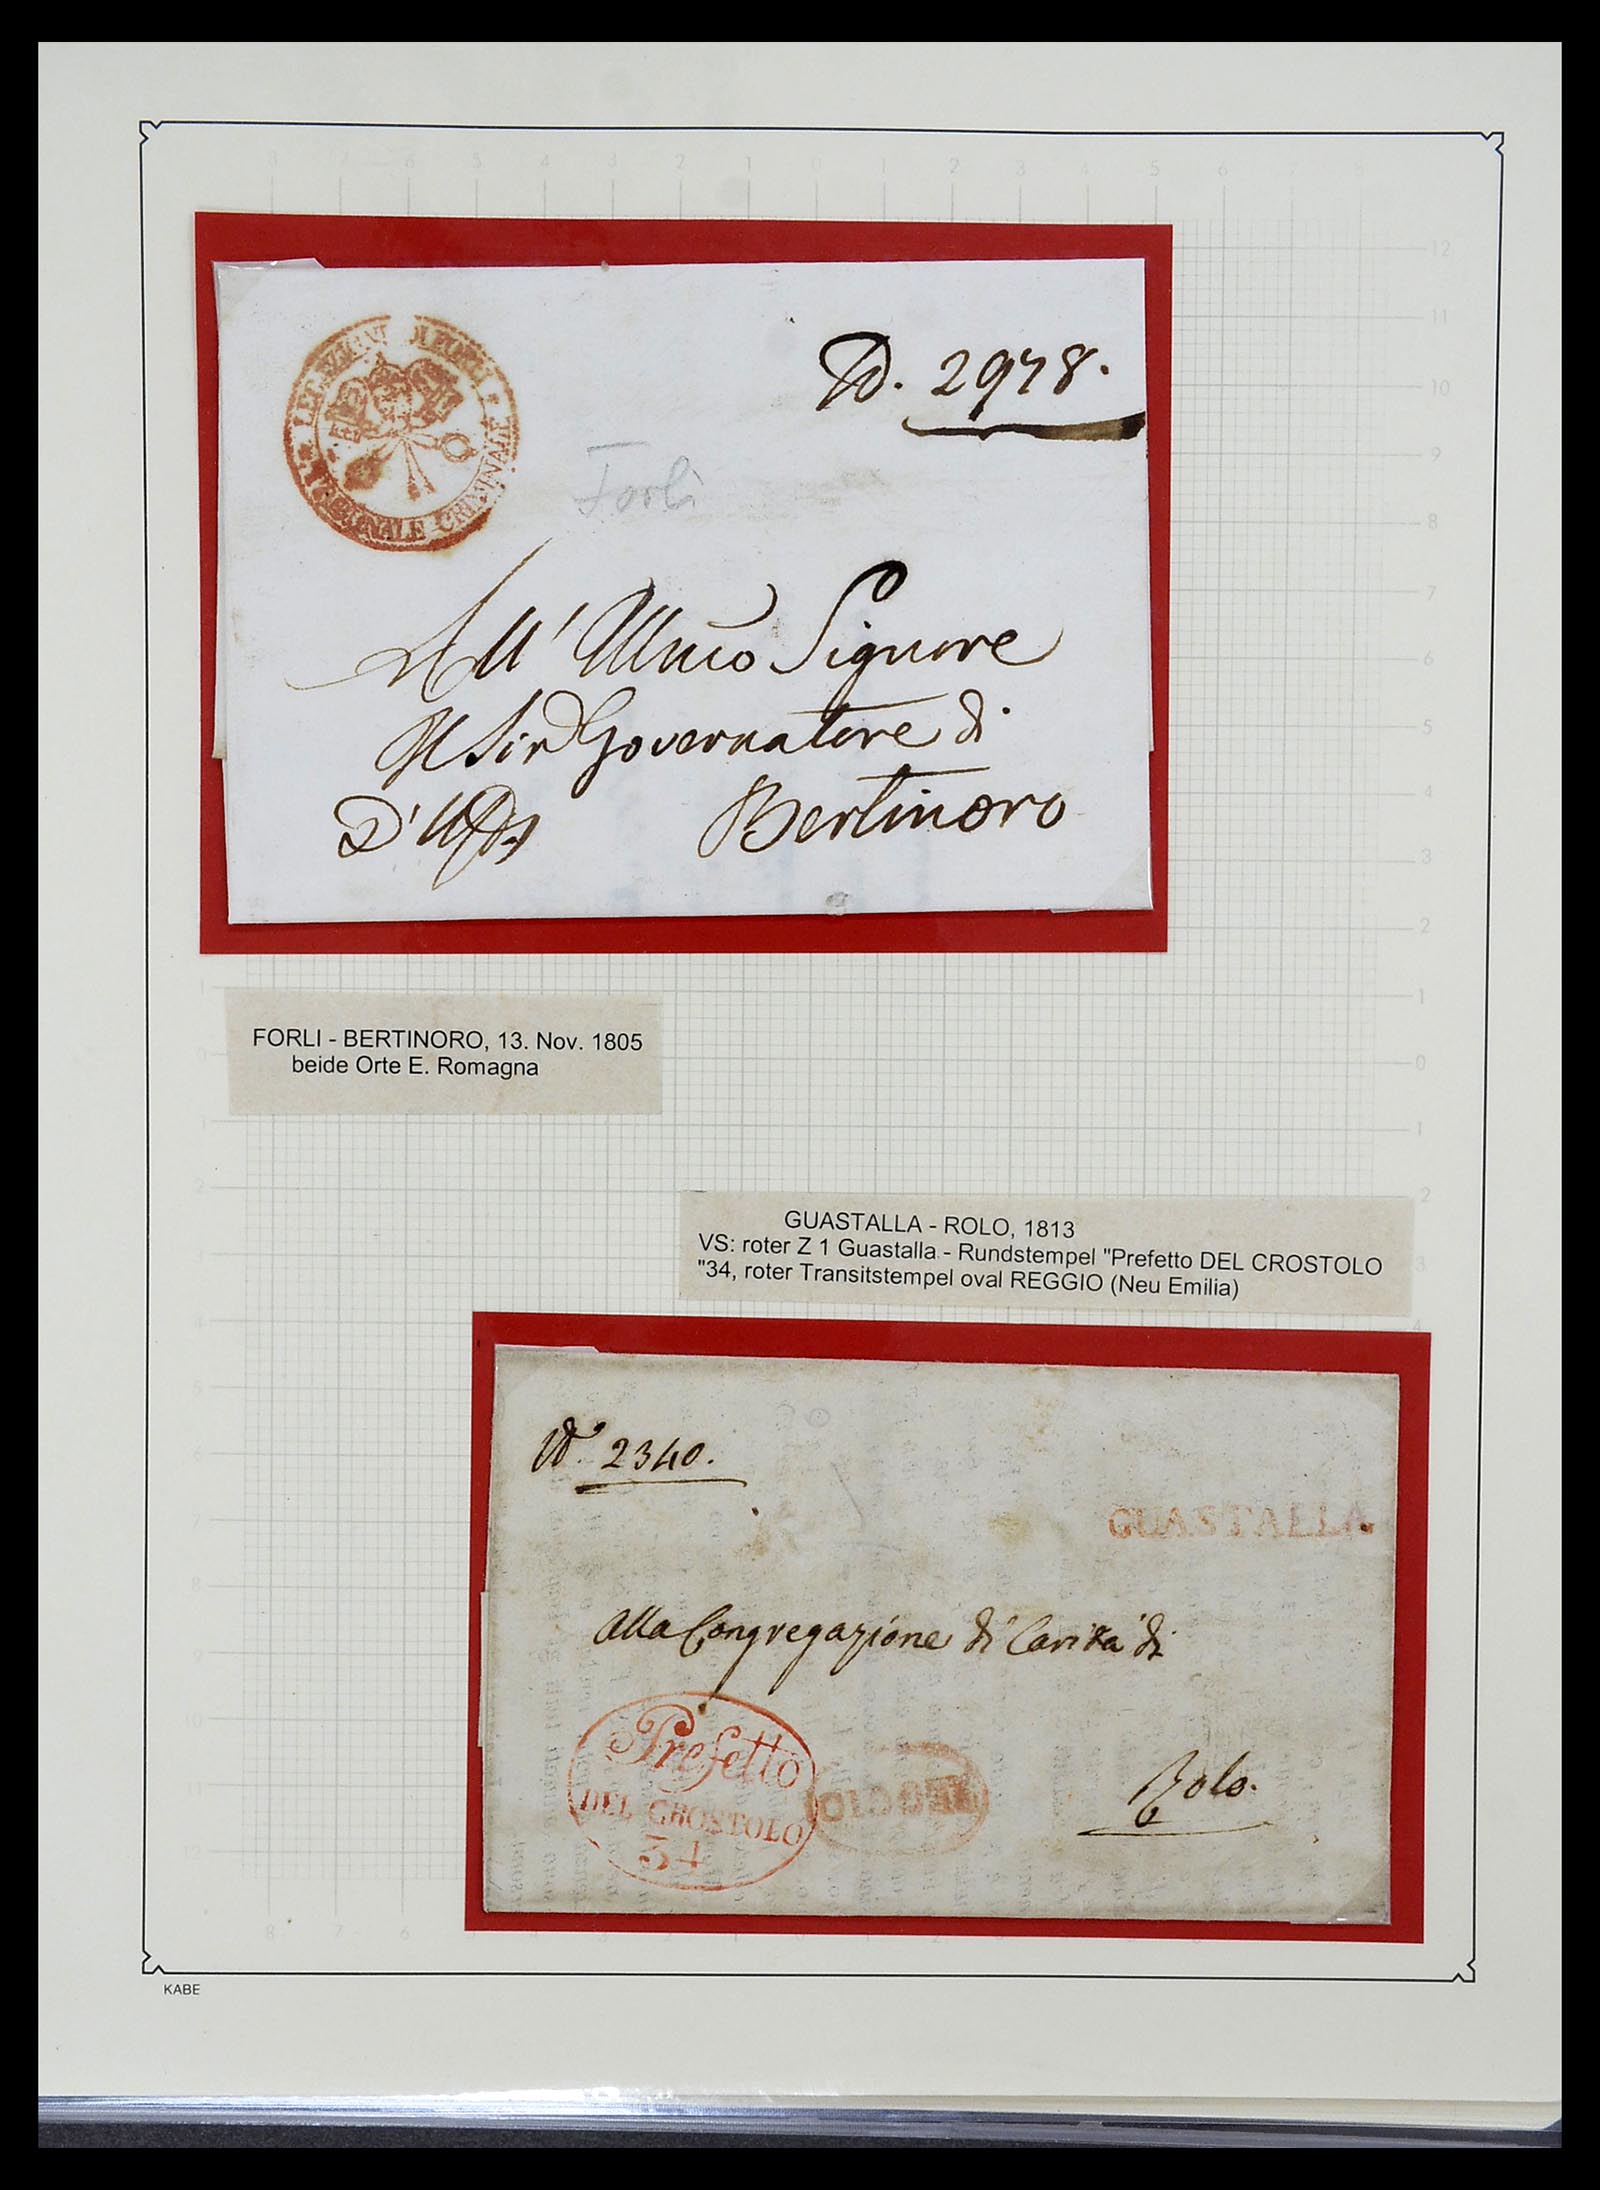 TRIBUNALE CRIMINALE
N. 2978.
Forlì
All' Illmo Signore
Il Sir Governatore di
Bertinoro
FORLI - BERTINORO, 13. Nov. 1805
beide Orte E. Romagna
GUASTALLA - ROLO, 1813
VS: roter Z 1 Guastalla - Rundstempel "Prefetto DEL CROSTOLO
"34, roter Transitstempel oval REGGIO (Neu Emilia)
N.º 2340.
GUASTALLA
Alla Congregazione di Carità di
Rolo.
Prefetto
DEL CROSTOLO
34
REGGIO
KABE